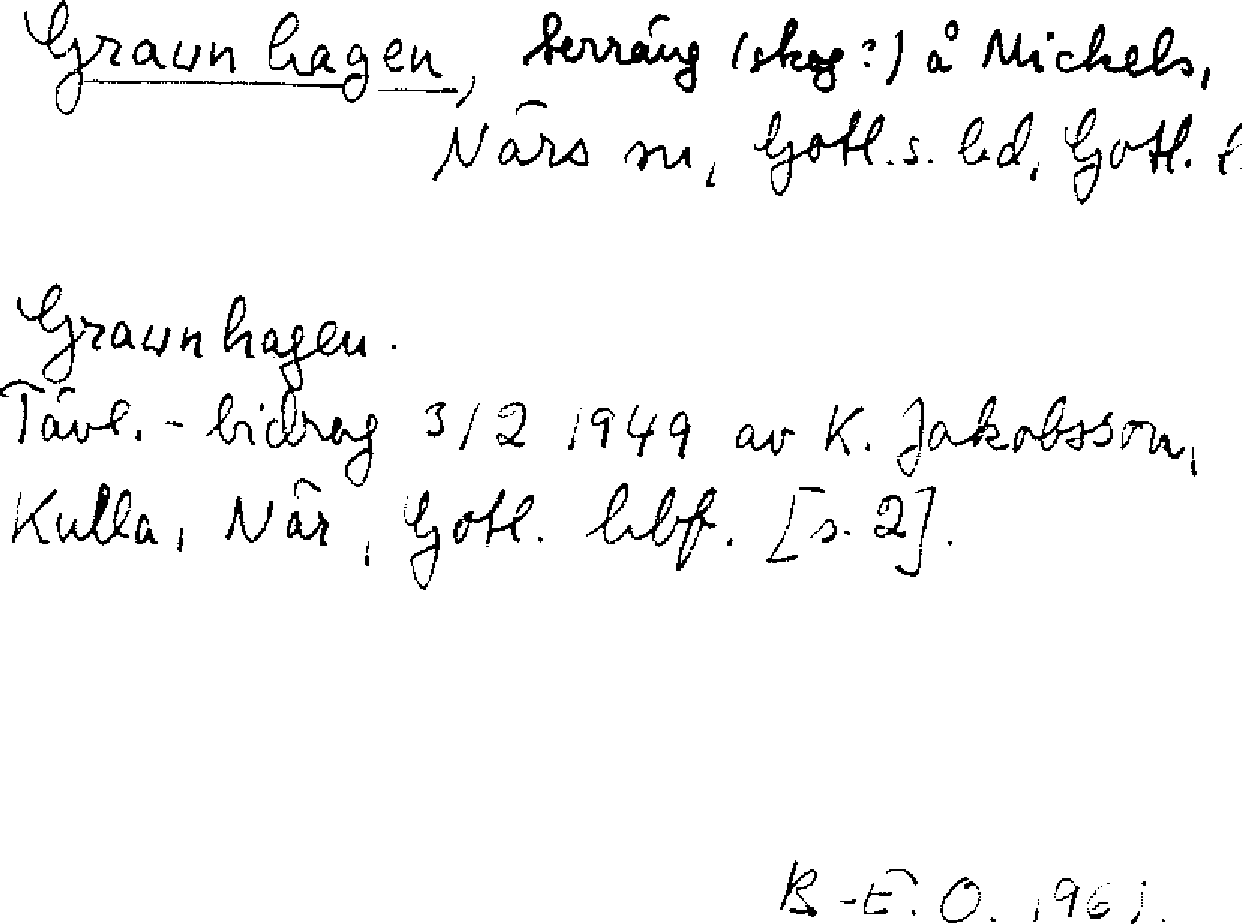 Graunhagen, terräng (skog?) å Michels,
Närs sn, Gotl. s. hd, Gotl. l.
Graunhagen.
Tävl.-bidrag 3/2 1949 av K. Jakobsson,
Kulla, När, Gotl. hbf. [s. 2].
B-E. O. 1961.